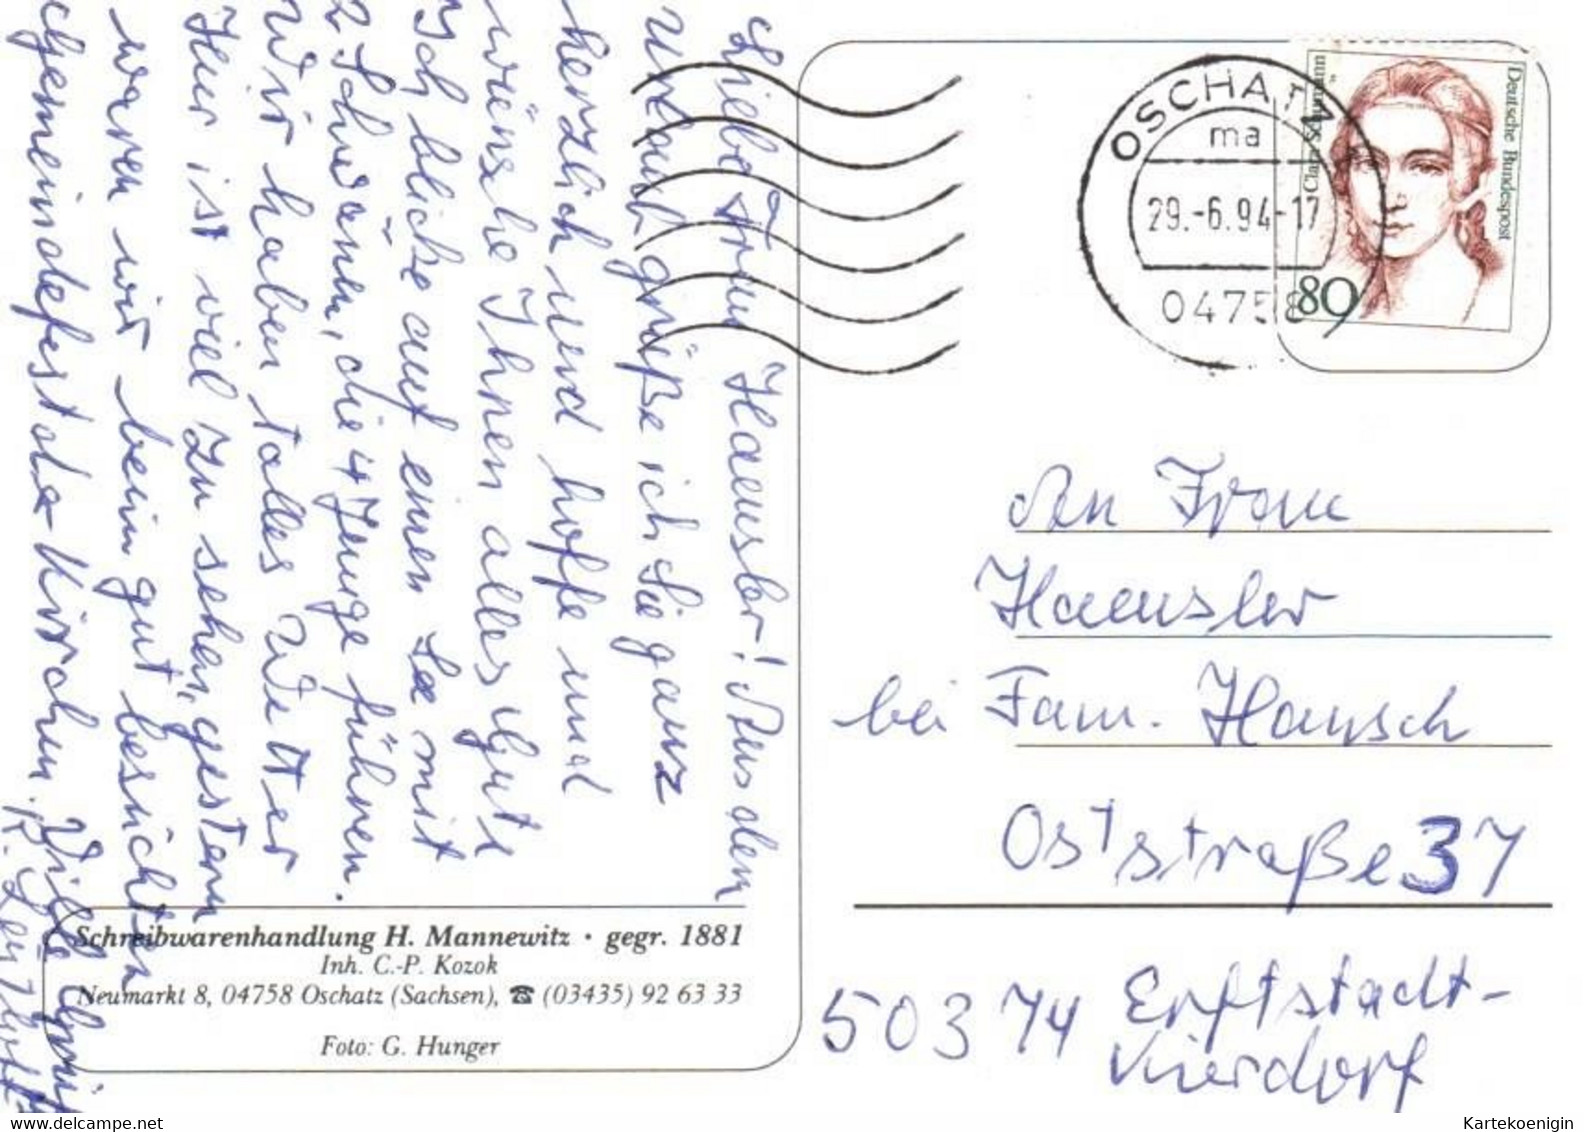 Liebe Frau Haensler! Aus dem
Urlaub grüße ich Sie ganz
herzlich und hoffe und
wünsche Ihnen alles Gute
Ich blicke auf einen See mit
2 Schwänen, die 4 Junge führen.
Wir haben tolles Wetter
Hier ist viel zu sehen, gestern
waren wir beim gut besuchten
Gemeindefest der Kirchen. Viele
R.
OSCHATZ 1
ma
29.-6.94-17
04758
Clara Schumann
Deutsche Bundespost
80
An Frau
Haensler
bei Fam. Hansch
Oststraße 37
50374 Erftstadt-
Kierdorf
Schreibwarenhandlung H. Mannewitz · gegr. 1881
Inh. C.-P. Kozok
Neumarkt 8, 04758 Oschatz (Sachsen), ☎ (03435) 92 63 33
Foto: G. Hunger
www.delcampe.net
Kartekoenigin